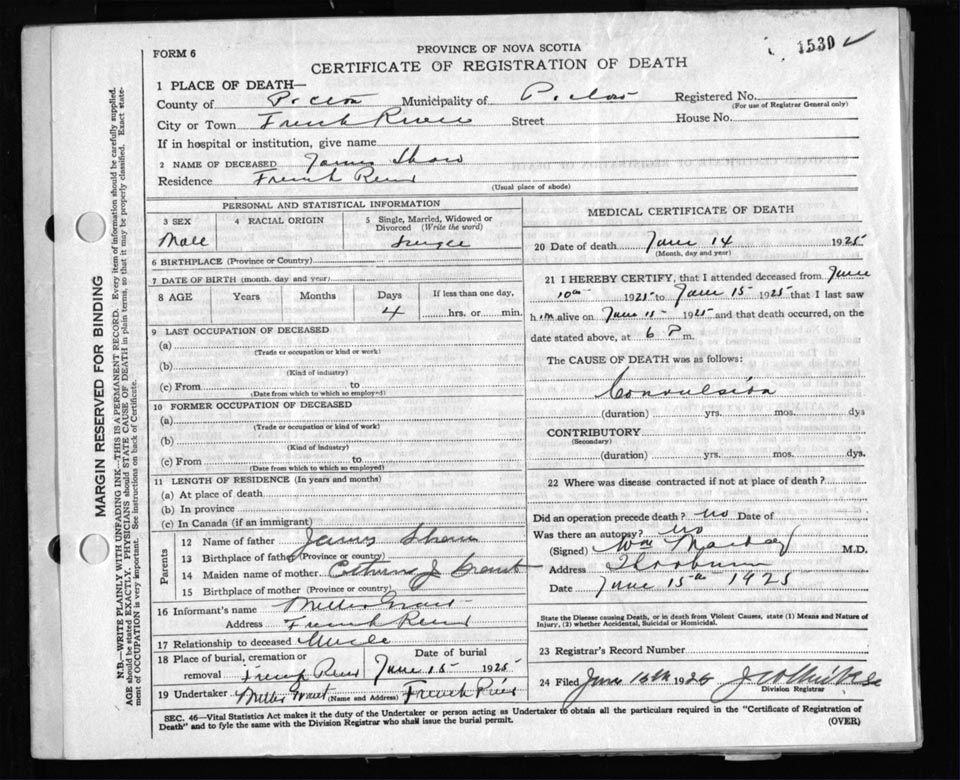 1530 ✓
FORM 6
PROVINCE OF NOVA SCOTIA
CERTIFICATE OF REGISTRATION OF DEATH
1 PLACE OF DEATH—
County of Pictou Municipality of Pictou Registered No.
(For use of Registrar General only)
City or Town French River Street House No.
If in hospital or institution, give name
2 NAME OF DECEASED James Shaw
Residence French River
(Usual place of abode)
PERSONAL AND STATISTICAL INFORMATION
3 SEX 4 RACIAL ORIGIN 5 Single, Married, Widowed or Divorced (Write the word)
Male Single
6 BIRTHPLACE (Province or Country)
7 DATE OF BIRTH (month, day and year)
8 AGE Years Months Days If less than one day,
4 hrs. or min.
9 LAST OCCUPATION OF DECEASED
(a)
(Trade or occupation or kind or work)
(b)
(Kind of industry)
(c) From to
(Date from which to which so employed)
10 FORMER OCCUPATION OF DECEASED
(a)
(Trade or occupation or kind of work)
(b)
(Kind of industry)
(c) From to
(Date from which to which so employed)
11 LENGTH OF RESIDENCE (In years and months)
(a) At place of death
(b) In province
(c) In Canada (if an immigrant)
Parents
12 Name of father James Shaw
13 Birthplace of father (Province or country)
14 Maiden name of mother J Grant
15 Birthplace of mother (Province or country)
16 Informant's name Grant
Address French River
17 Relationship to deceased Uncle
18 Place of burial, cremation or removal French River Date of burial June 15 1925
19 Undertaker Grant (Name and Address) French River
MEDICAL CERTIFICATE OF DEATH
20 Date of death June 14 1925
(Month, day and year)
21 I HEREBY CERTIFY, that I attended deceased from June
10th 1925 to June 15 1925 that I last saw
him alive on June 15 1925 and that death occurred, on the
date stated above, at 6 P m.
The CAUSE OF DEATH was as follows:
Convulsion
(duration) yrs. mos. dys
CONTRIBUTORY
(Secondary)
(duration) yrs. mos. dys.
22 Where was disease contracted if not at place of death?
Did an operation precede death? no Date of
Was there an autopsy? no
(Signed) Wm M.D.
Address Thorburn
Date June 15th 1925
State the Disease causing Death, or in death from Violent Causes, state (1) Means and Nature of
Injury, (2) whether Accidental, Suicidal or Homicidal.
23 Registrar's Record Number
24 Filed June 16th 1925
Division Registrar
SEC. 46—Vital Statistics Act makes it the duty of the Undertaker or person acting as Undertaker to obtain all the particulars required in the "Certificate of Registration of
Death" and to fyle the same with the Division Registrar who shall issue the burial permit.
(OVER)
MARGIN RESERVED FOR BINDING
N.B.—WRITE PLAINLY WITH UNFADING INK—THIS IS A PERMANENT RECORD. Every item of information should be carefully supplied.
AGE should be stated EXACTLY. PHYSICIANS should STATE CAUSE OF DEATH in plain terms, so that it may be properly classified. Exact state-
ment of OCCUPATION is very important. See instructions on back of Certificate.